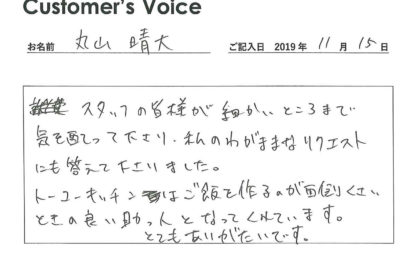 Customer's Voice
お名前 丸山 晴大 ご記入日 2019年 11月 15日
スタッフの皆様が細かいところまで
気を配って下さり、私のわがままなリクエスト
にも答えて下さいました。
トーコーキッチンはご飯を作るのが面倒くさい
ときの良い助っ人となってくれています。
とてもありがたいです。